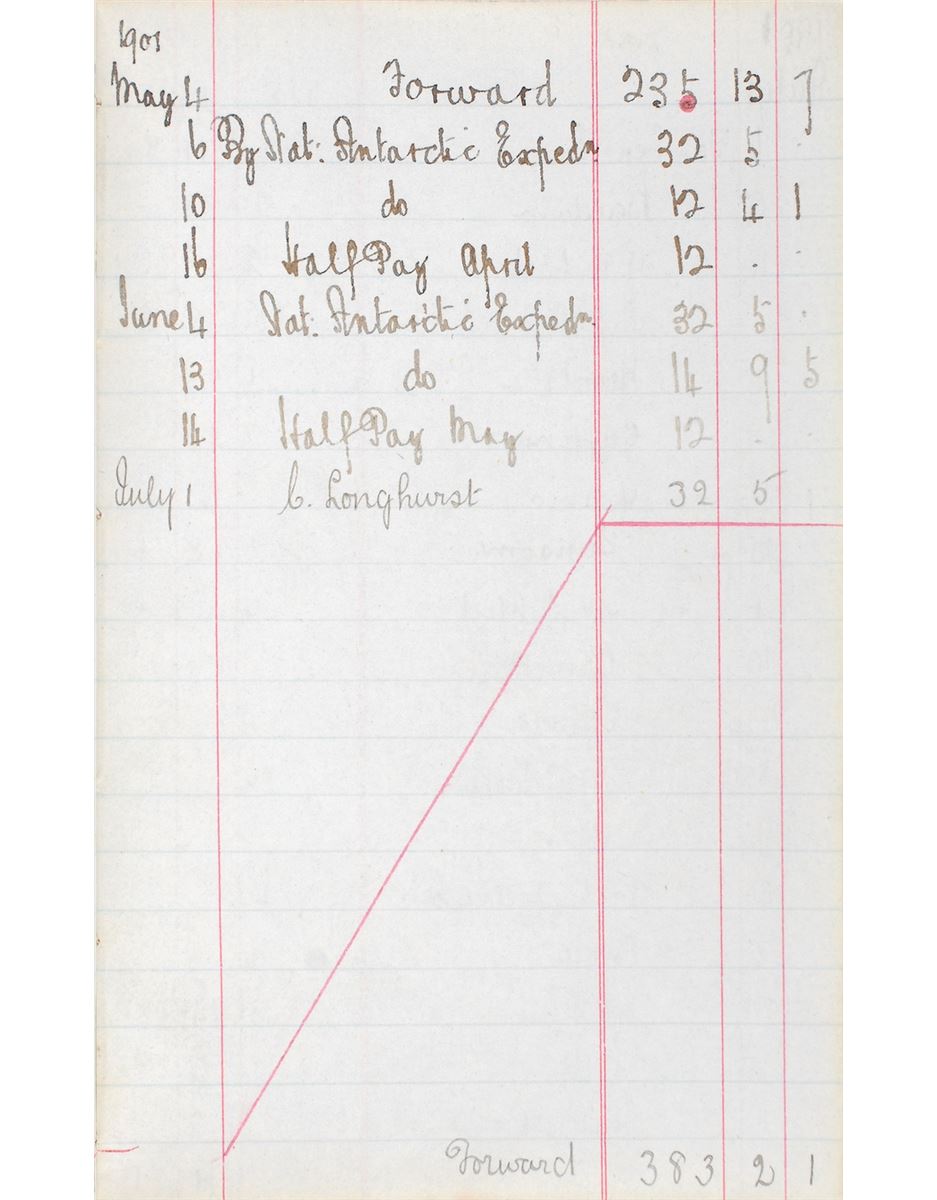 1901
May 4 Forward 235 13 7
6 By Nat: Antarctic Expedn 32 5 .
10 do 12 4 1
16 Half Pay April 12 . .
June 4 Nat: Antarctic Expedn 32 5 .
13 do 14 9 5
14 Half Pay May 12 . .
July 1 C. Longhurst 32 5
Forward 383 2 1